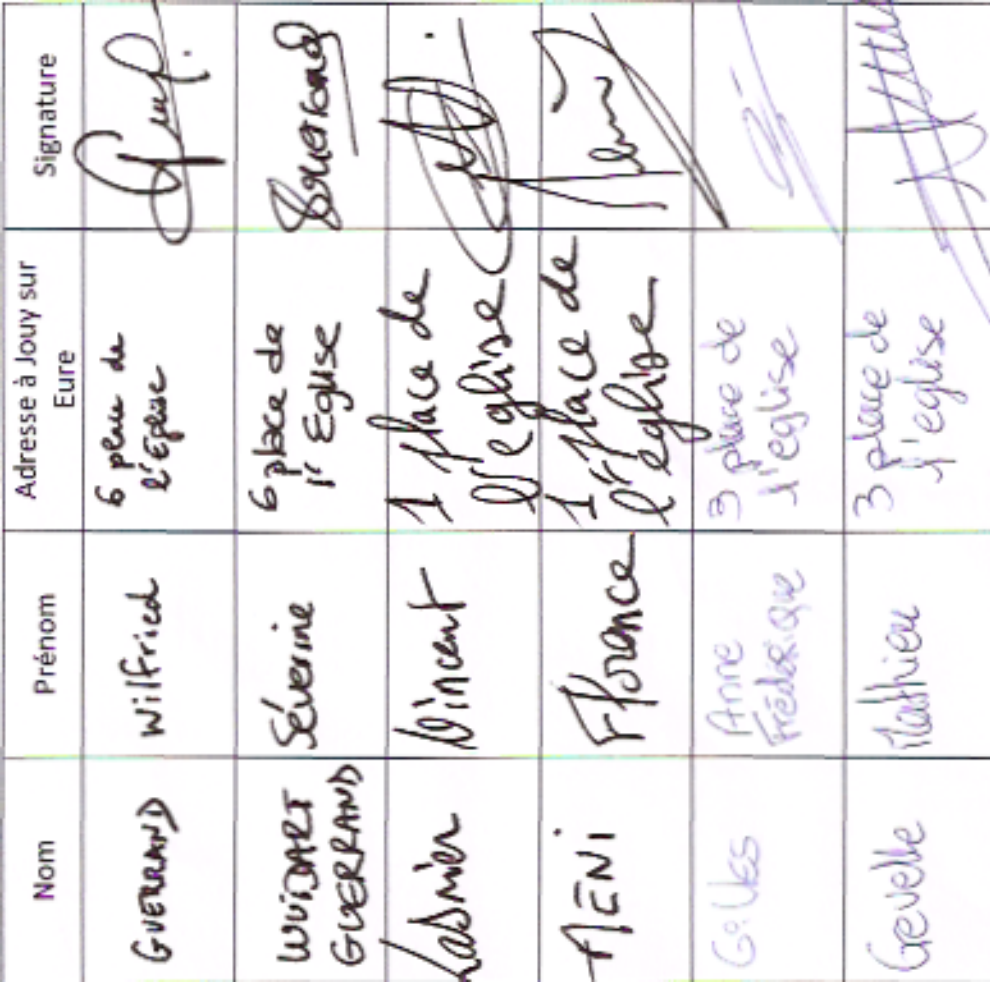 Nom Prénom Adresse à Jouy sur Eure Signature
GUERRAND Wilfried 6 place de
l'Eglise
WUIDART Séverine 6 place de
GUERRAND l'Eglise Guerrand
Ladnier Vincent 1 place de
l'eglise
AENI Florence 1 place de
l'église
Anne 3 place de
Frédérique l'eglise
Gevelle Mathieu 3 place de
l'eglise